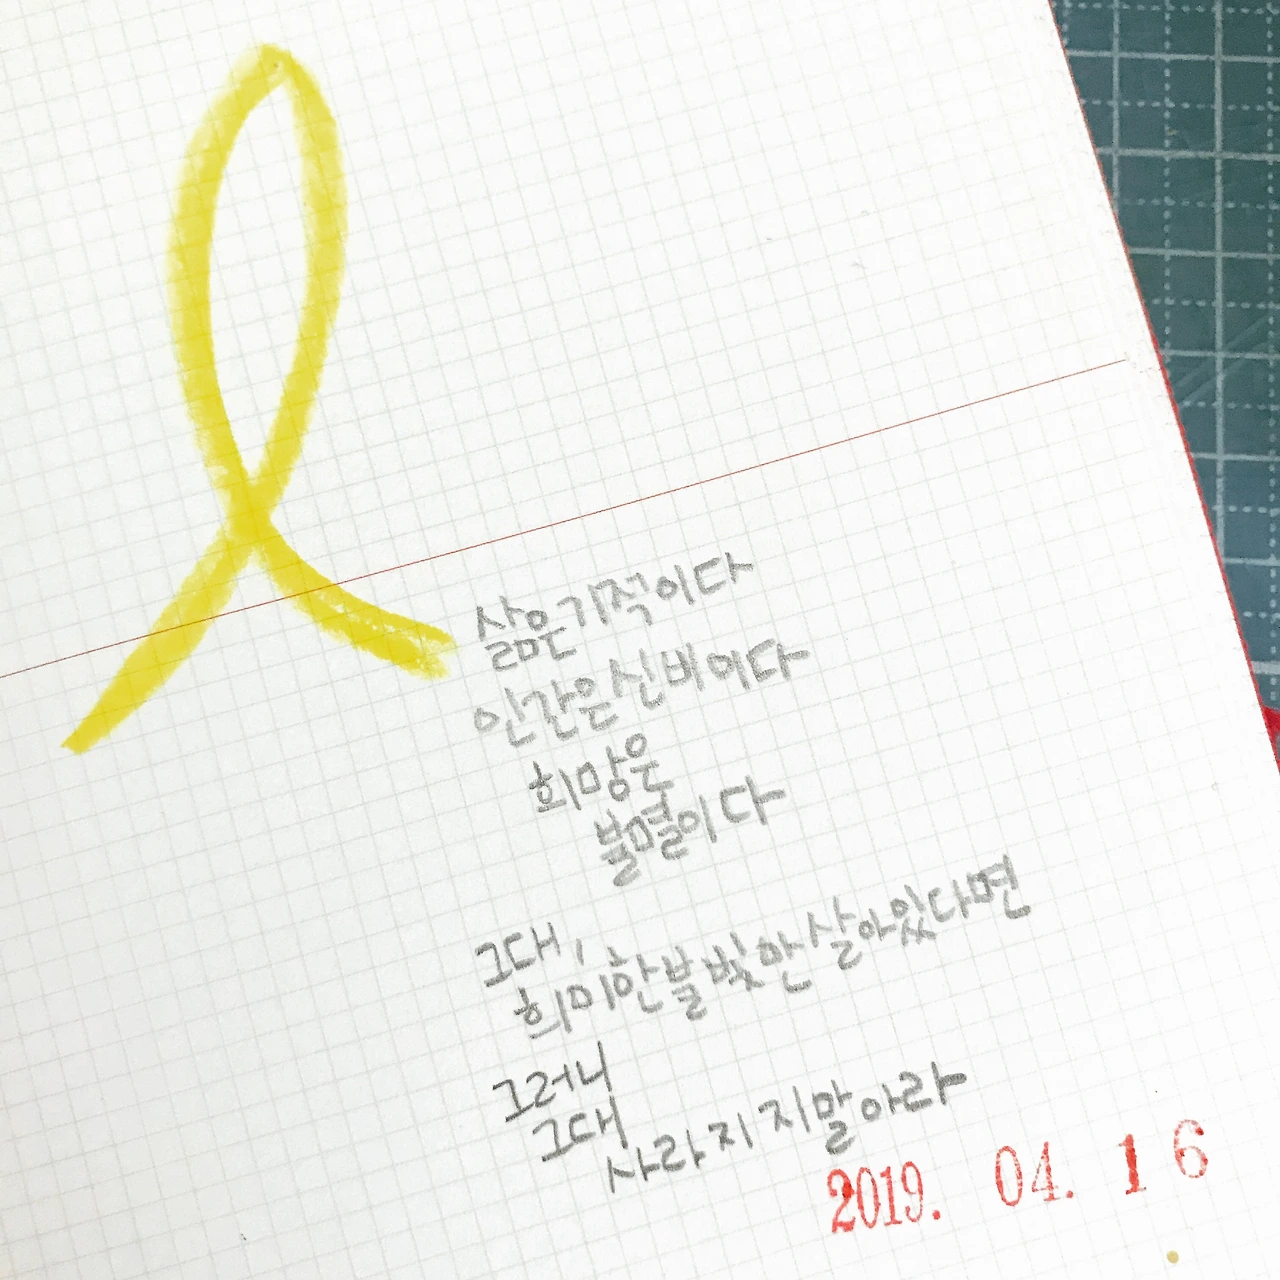 삶은 기적이다
인간은 신비이다
희망은
불멸이다
그대,
희미한 불빛만 살아있다면
그러니
그대
사라지지 말아라
2019. 04. 16